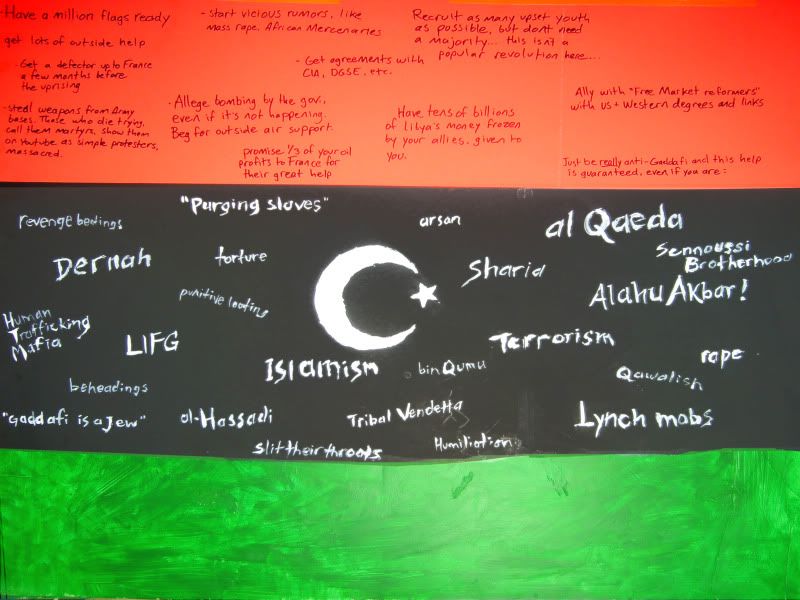 - Have a million flags ready
get lots of outside help
- Get a defector up to France
a few months before
the uprising
- Steal weapons from Army
bases. Those who die trying,
call them martyrs, show them
on Youtube as simple protesters,
massacred.
- Start vicious rumors, like
mass rape, African Mercenaries
- Get agreements with
CIA, DGSE, etc.
- Allege bombing by the gov.,
even if it's not happening.
Beg for outside air support.
promise 1/3 of your oil
profits to France for
their great help
Recruit as many upset youth
as possible, but dont need
a majority... this isn't a
popular revolution here....
Have tens of billions
of Libya's money frozen
by your allies, given to
you.
Ally with "Free Market reformers"
with US + Western degrees and links
Just be really anti-Gaddafi and this help
is guaranteed, even if you are:
"Purging slaves"
revenge beatings
arson
al Qaeda
Dernah
torture
Sharia
Sennoussi
Brotherhood
punitive looting
Alahu Akbar!
Human
Trafficking
Mafia
LIFG
Terrorism
Islamism
bin Qumu
rape
Qawalish
beheadings
"Gaddafi is a Jew"
al-Hassadi
Tribal Vendetta
Lynch mobs
Slit their throats
Humiliation